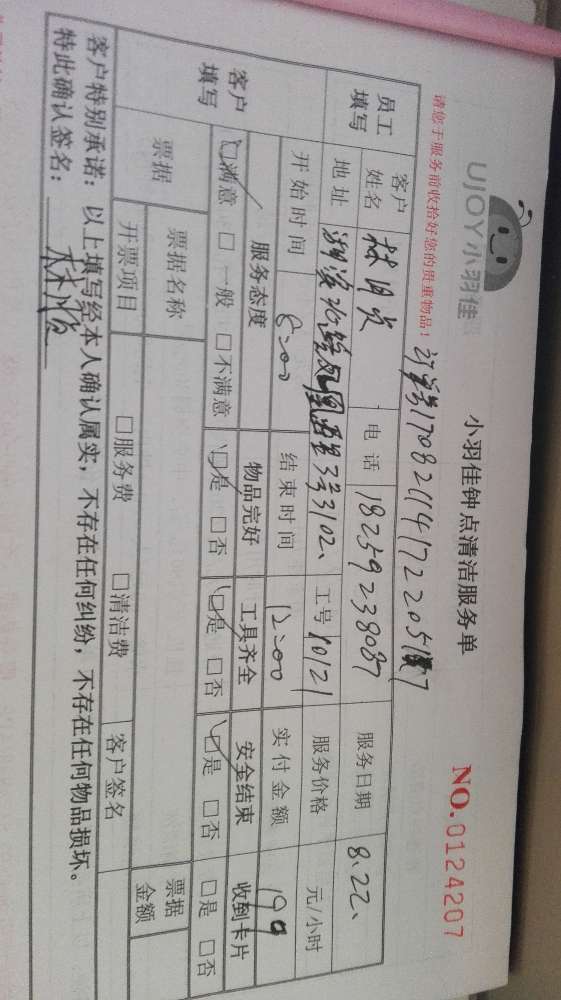 UJOY小羽佳
小羽佳钟点清洁服务单
NO.0124207
请您于服务前收拾好您的贵重物品！
员工填写
客户姓名
电话 18259238087
服务日期 8.22、
地址
3号3102、
工号 10121
服务价格
元/小时
客户填写
开始时间 8:00
结束时间 12:00
实付金额 190
服务态度
物品完好
工具齐全
安全结束
收到卡片
☑满意 □一般 □不满意
☑是 □否
☑是 □否
☑是 □否
□是 □否
票据
票据名称
票据金额
开票项目
□服务费 □清洁费
客户签名
客户特别承诺：以上填写经本人确认属实，不存在任何纠纷，不存在任何物品损坏。
特此确认签名：